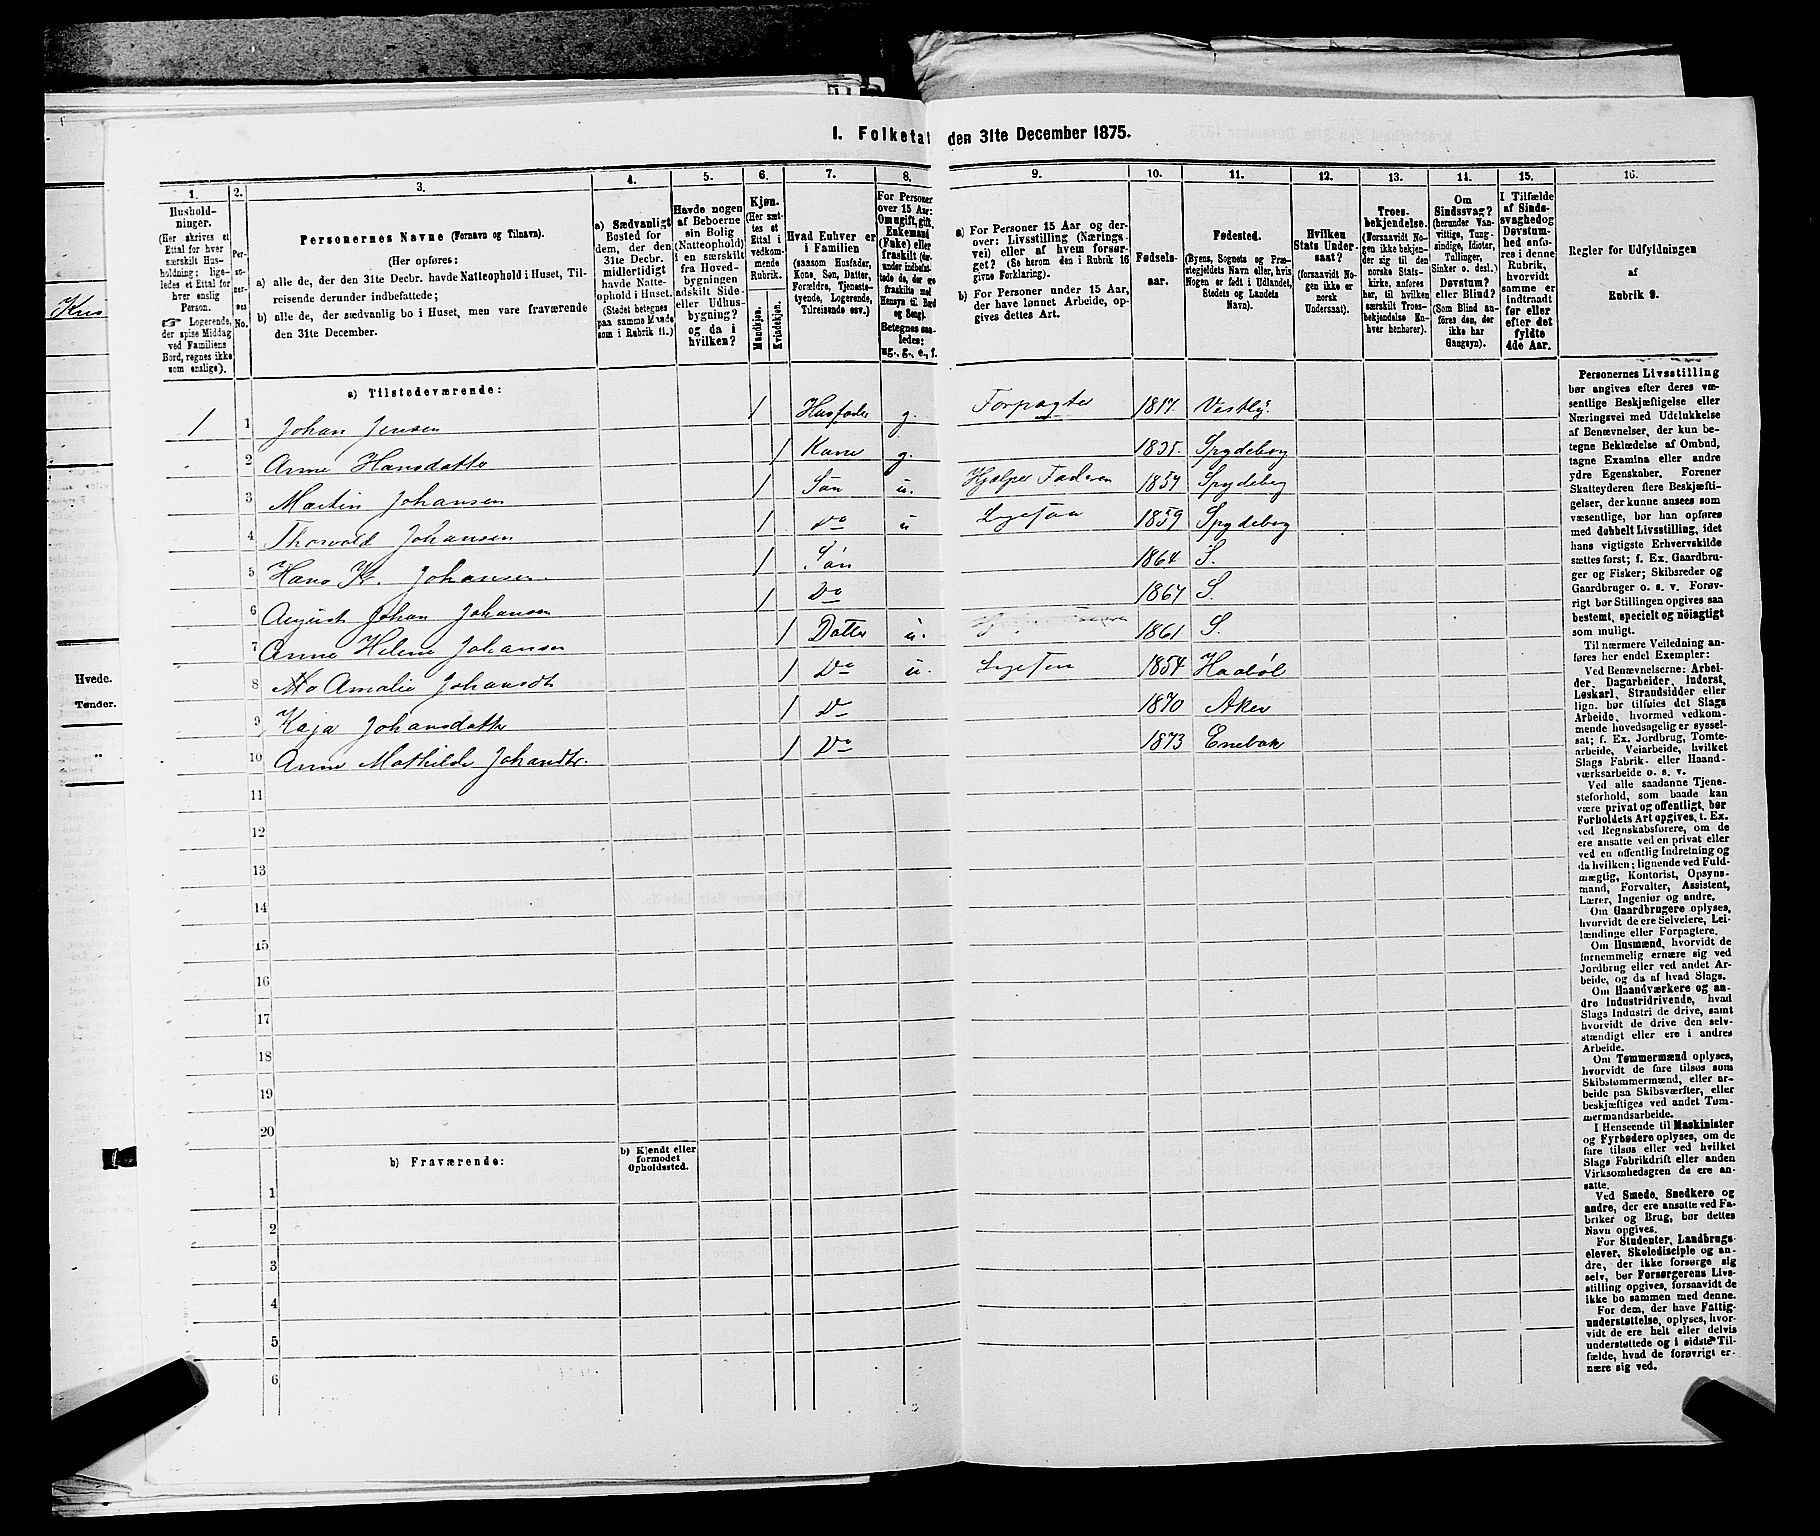 I. Folketæ den 31te December 1875.
1.
Hushold-
ninger.
(Her skrives et
Ettal for hver
særskilt Hus-
holdning; lige-
ledes et Ettal for
hver enslig
Person.
☞ Logerende,
der spise Middag
ved Familiens
Bord, regnes ikke
som enslige).
2.
Per-
so-
ner-
nes
No.
3.
Personernes Navne (Fornavn og Tilnavn).
(Her opføres:
a) alle de, der den 31te Decbr. havde Natteophold i Huset, Til-
reisende derunder indbefattede;
b) alle de, der sædvanlig bo i Huset, men vare fraværende
den 31te December.
4.
a) Sædvanligt
Bosted for
dem, der den
31te Decbr.
midlertidigt
havde Natte-
ophold i Huset.
(Stedet betegnes
paa samme Maade
som i Rubrik 11.)
5.
Havde nogen
af Beboerne
sin Bolig
(Natteophold)
i en særskilt
fra Hoved-
bygningen
adskilt Side-
eller Udhus-
bygning?
og da i
hvilken?
6.
Kjøn.
(Her sæt-
tes et
Ettal i
vedkom-
mende
Rubrik.
Mandkjøn.
Kvindekjøn.
7.
Hvad Enhver er
i Familien
(saasom Husfader,
Kone, Søn, Datter,
Forældre, Tjeneste-
tyende, Logerende,
Tilreisende osv.)
8.
For Personer
over 15 Aar:
Om ugift, gift,
Enkemand
(Enke) eller
fraskilt
Hensyn til Bord
og Seng).
Betegnes saa-
ledes:
ug., g., e., f.
9.
a) For Personer 15 Aar og der-
over: Livsstilling (Nærings-
vei) eller af hvem forsør-
get? (Se herom den i Rubrik 16
givne Forklaring).
b) For Personer under 15 Aar,
der have lønnet Arbeide, op-
gives dettes Art.
10.
Fødsels-
aar.
11.
Fødested.
(Byens, Sognets og Præ-
stegjeldets Navn eller, hvis
Nogen er født i Udlandet,
Stedets og Landets
Navn).
12.
Hvilken
Stats Under-
saat?
(forsaavidt No-
gen ikke er
norsk
Undersaat).
13.
Troes-
bekjendelse.
(Forsaavidt No-
gen ikke bekjen-
der sig til den
norske Stats-
kirke, anføres
her, til hvilken
særskilt Troes-
bekjendelse En-
hver henhører).
14.
Om
Sindssvag?
(herunder Van-
vittige, Tung-
sindige, Idioter,
Tullinger,
Sinker o. desl.)
Døvstum?
eller Blind?
(Som Blind an-
føres den, der
ikke har
Gangsyn).
15.
I Tilfælde
af Sinds-
svaghed og
Døvstum-
hed anfø-
res i denne
Rubrik,
hvorvidt
samme er
indtraadt
før eller
efter det
fyldte
4de Aar.
16.
Regler for Udfyldningen
af
Rubrik 9.
a) Tilstedeværende:
1 1 Johan Jensen 1 Husfader g. Forpagter 1817. Vestby.
2 Anne Hansdatter 1 Kone g. 1835. Spydeberg
3 Martin Johansen 1 Søn u. Hjælper Faderen 1857 Spydeberg
4 Thorvald Johansen 1 Do u Ligesaa 1859 Spydeberg
5 Hans Kr. Johansen 1 Søn 1864 S.
6 August Johan Johansen 1 Do 1867 S.
7 Anne Helene Johansen 1 Datter u. 1861 S.
8 Amalie Johansdt 1 Do u. Ligesaa 1854 Haabøl
9 Kaja Johansdatter 1 Do 1870 Aker
10 Anne Mathilde Johandtr. 1 Do 1873 Enebak
11
12
13
14
15
16
17
18
19
20
b) Fraværende:
b) Kjendt eller
formodet
Opholdssted.
1
2
3
4
5
6
Personernes Livsstilling
bør angives efter deres væ-
sentlige Beskjæftigelse eller
Næringsvei med Udelukkelse
af Benævnelser, der kun be-
tegne Beklædelse af Ombud,
tagne Examina eller andre
ydre Egenskaber. Forener
Skatteyderen flere Beskjæfti-
gelser, der kunne ansees som
væsentlige, bør han opføres
med dobbelt Livsstilling, idet
hans vigtigste Erhvervskilde
sættes først; f. Ex. Gaardbru-
ger og Fisker; Skibsreder og
Gaardbruger o. s. v. Forøv-
rigt bør Stillingen opgives saa
bestemt, specielt og nöiagtigt
som muligt.
Til nærmere Veiledning an-
føres her endel Exempler:
Ved Benævnelserne: Arbei-
der, Dagarbeider, Inderst,
Løskarl, Strandsidder eller
lign. bør tilføies det Slags
Arbeide, hvormed vedkom-
mende hovedsagelig er syssel-
sat; f. Ex. Jordbrug, Tomte-
arbeide, Veiarbeide, hvilket
Slags Fabrik- eller Haand-
værksarbeide o. s. v.
Ved alle saadanne Tjene-
steforhold, som baade kan
være privat og offentligt, bør
Forholdets Art opgives, t. Ex.
ved Regnskabsførere, om de
ere ansatte ved en privat eller
ved en offentlig Indretning og
da hvilken; lignende ved Fuld-
mægtig, Kontorist, Opsyns-
mand, Forvalter, Assistent,
Lærer, Ingeniør og andre.
Om Gaardbrugere oplyses,
hvorvidt de ere Selveiere, Lei-
lændinge eller Forpagtere.
Om Husmænd, hvorvidt de
fornemmelig ernære sig ved
Jordbrug eller ved andet Ar-
beide, og da af hvad Slags.
Om Haandværkere og an-
dre Industridrivende, hvad
Slags Industri de drive, samt
hvorvidt de drive den selv-
stændigt eller ere i andres
Arbeide.
Om Tømmermænd oplyses,
hvorvidt de fare tilsøs som
Skibstømmermænd, eller ar-
beide paa Skibsværfter, eller
beskjæftiges ved andet Tøm-
mermandsarbeide.
I Henseende til Maskinister
og Fyrbødere oplyses, om de
fare tilsøs eller ved hvilket
Slags Fabrikdrift eller anden
Virksomhedsgren de ere an-
satte.
Ved Smede, Snedkere og
andre, der ere ansatte ved Fa-
briker og Brug, bør dettes
Navn opgives.
For Studenter, Landbrugs-
elever, Skoledisciple og an-
dre, der ikke forsørge sig
selv, bør Forsørgerens Livs-
stilling opgives, forsaavidt de
ikke bo sammen med denne.
For dem, der have Fattig-
understøttelse, oplyses, hvor-
vidt de ere helt eller delvis
understøttede og i sidste Til-
fælde, hvad de forøvrigt er-
nære sig ved.
Hvede.
Tønder.
"